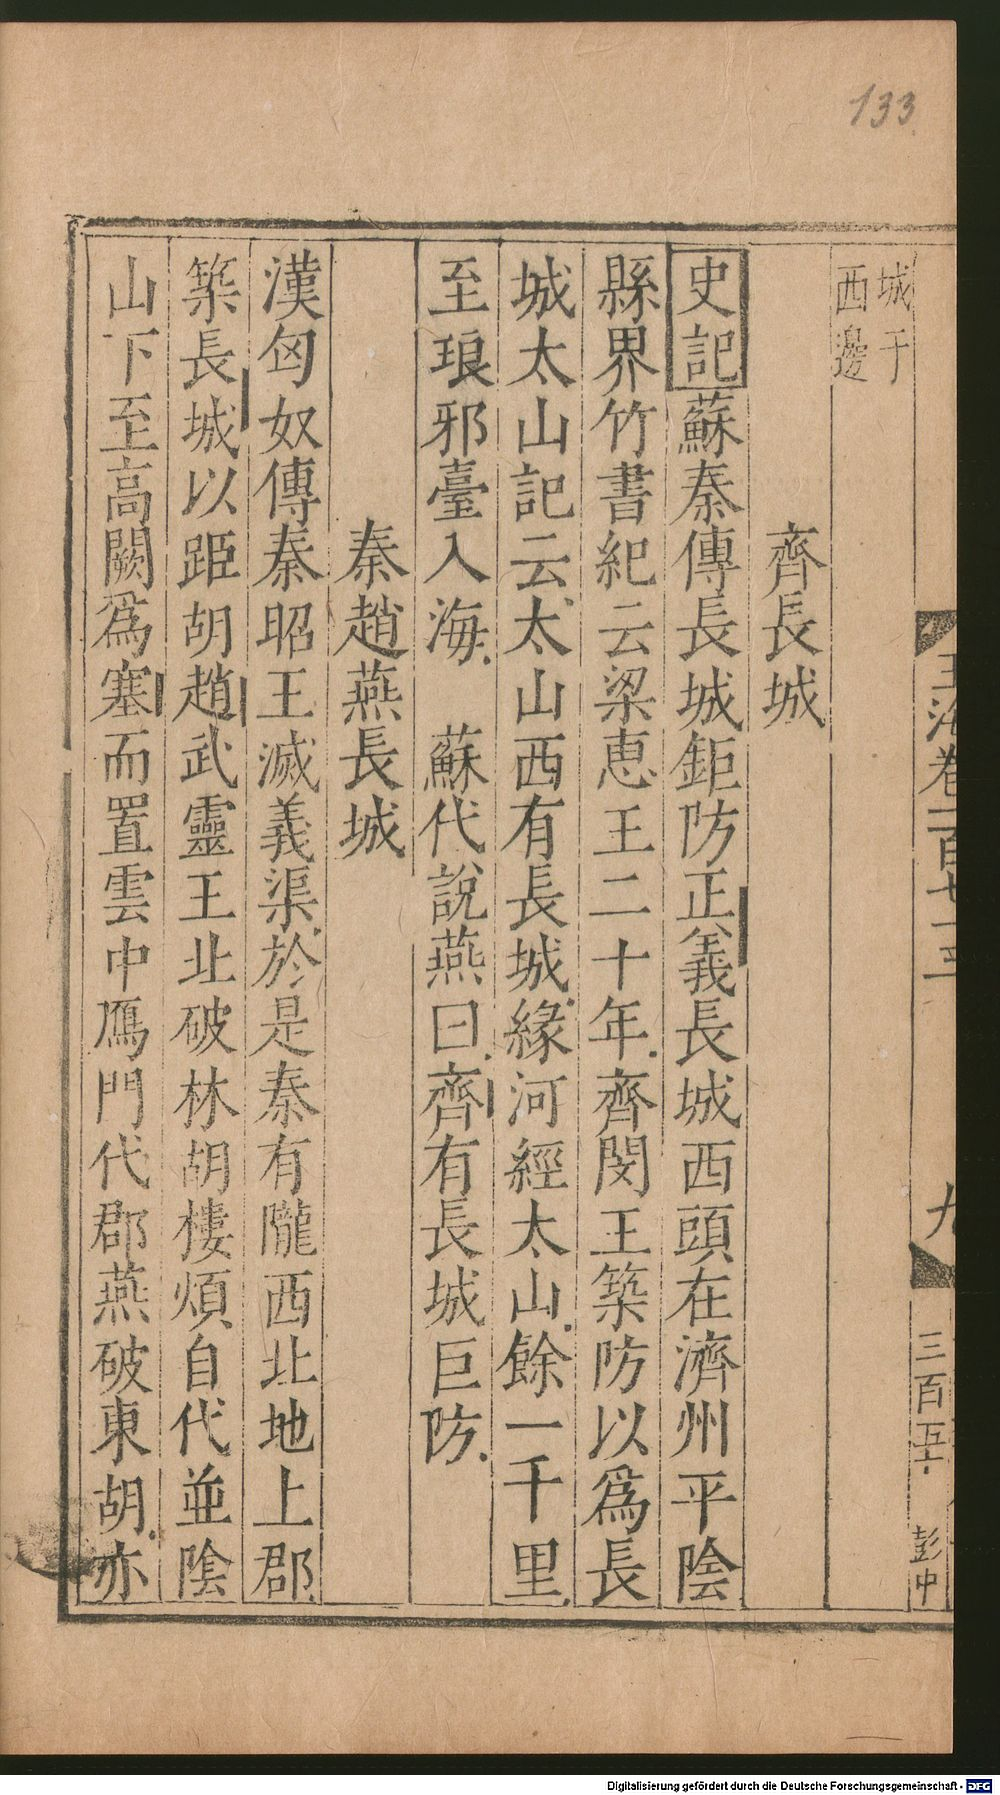 133
城于
西邊
齊長城
史記蘇秦傳長城鉅防正義長城西頭在濟州平陰
縣界竹書紀云梁惠王二十年齊閔王築防以爲長
城太山記云太山西有長城緣河經太山餘一千里
至琅邪臺入海 蘇代說燕曰齊有長城巨防
秦趙燕長城
漢匈奴傳秦昭王滅義渠於是秦有隴西北地上郡
築長城以距胡趙武靈王北破林胡樓煩自代並陰
山下至高闕爲塞而置雲中鴈門代郡燕破東胡亦
玉海卷一百七十三
九
三百五十
彭中
Digitalisierung gefördert durch die Deutsche Forschungsgemeinschaft - DFG